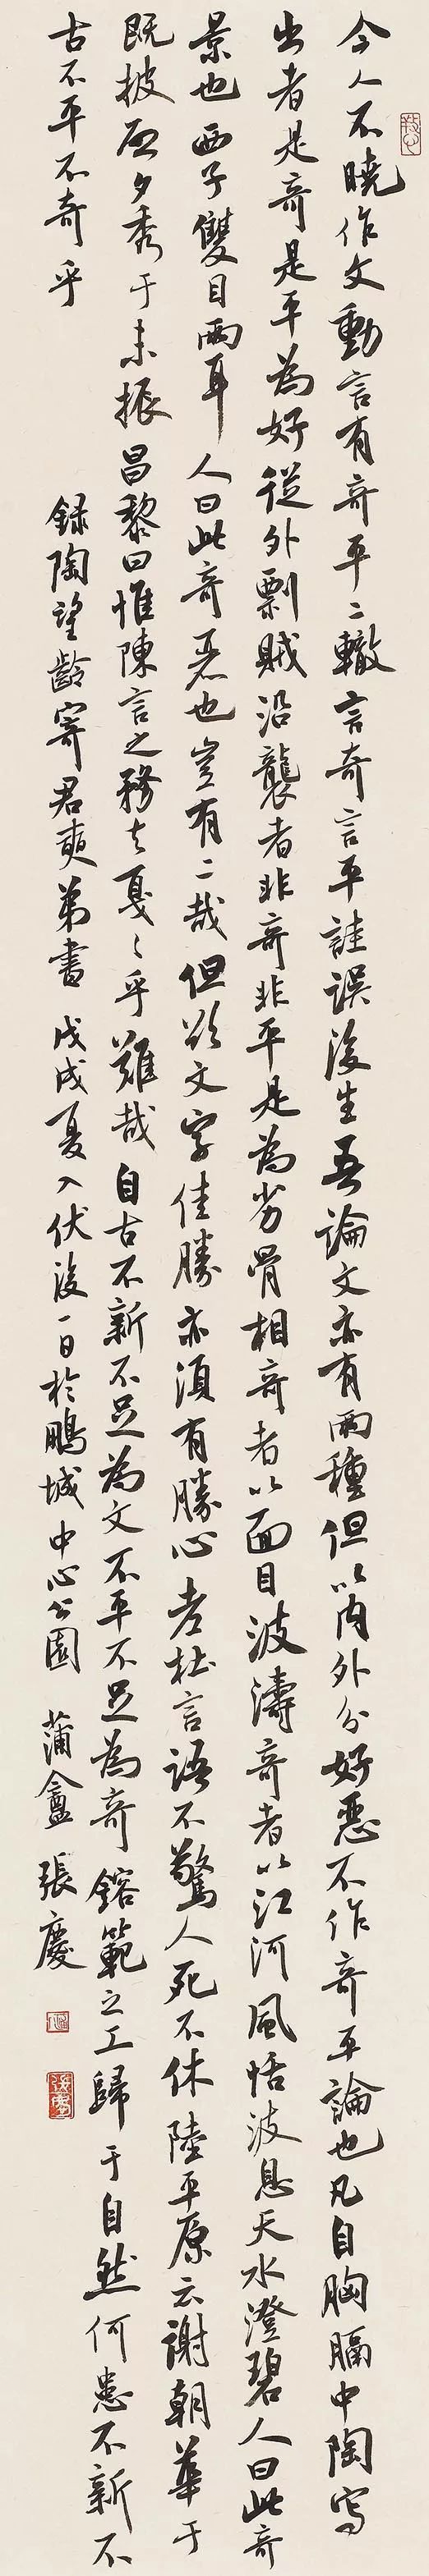 今人不曉作文動言有奇平二轍言奇言平詿誤後生吾論文亦有兩種但以內外分好惡不作奇平論也凡自胸膈中陶寫
出者是奇是平為好從外剽賊沿襲者非奇非平是為劣骨相奇者以面目波濤奇者以江河風恬波息天水澄碧人曰此奇
景也西子雙目兩耳人曰此奇惡也豈有二哉但欲文字佳勝亦須有勝心老杜言語不驚人死不休陸平原云謝朝華于
既披啟夕秀于未振昌黎曰惟陳言之務去戛〻乎難哉自古不新不足為文不平不足為奇鎔範之工歸于自然何患不新不
古不平不奇乎
錄陶望齡寄君奭弟書 戊戌夏入伏後一日於鵬城中心公園 蒲盦張慶